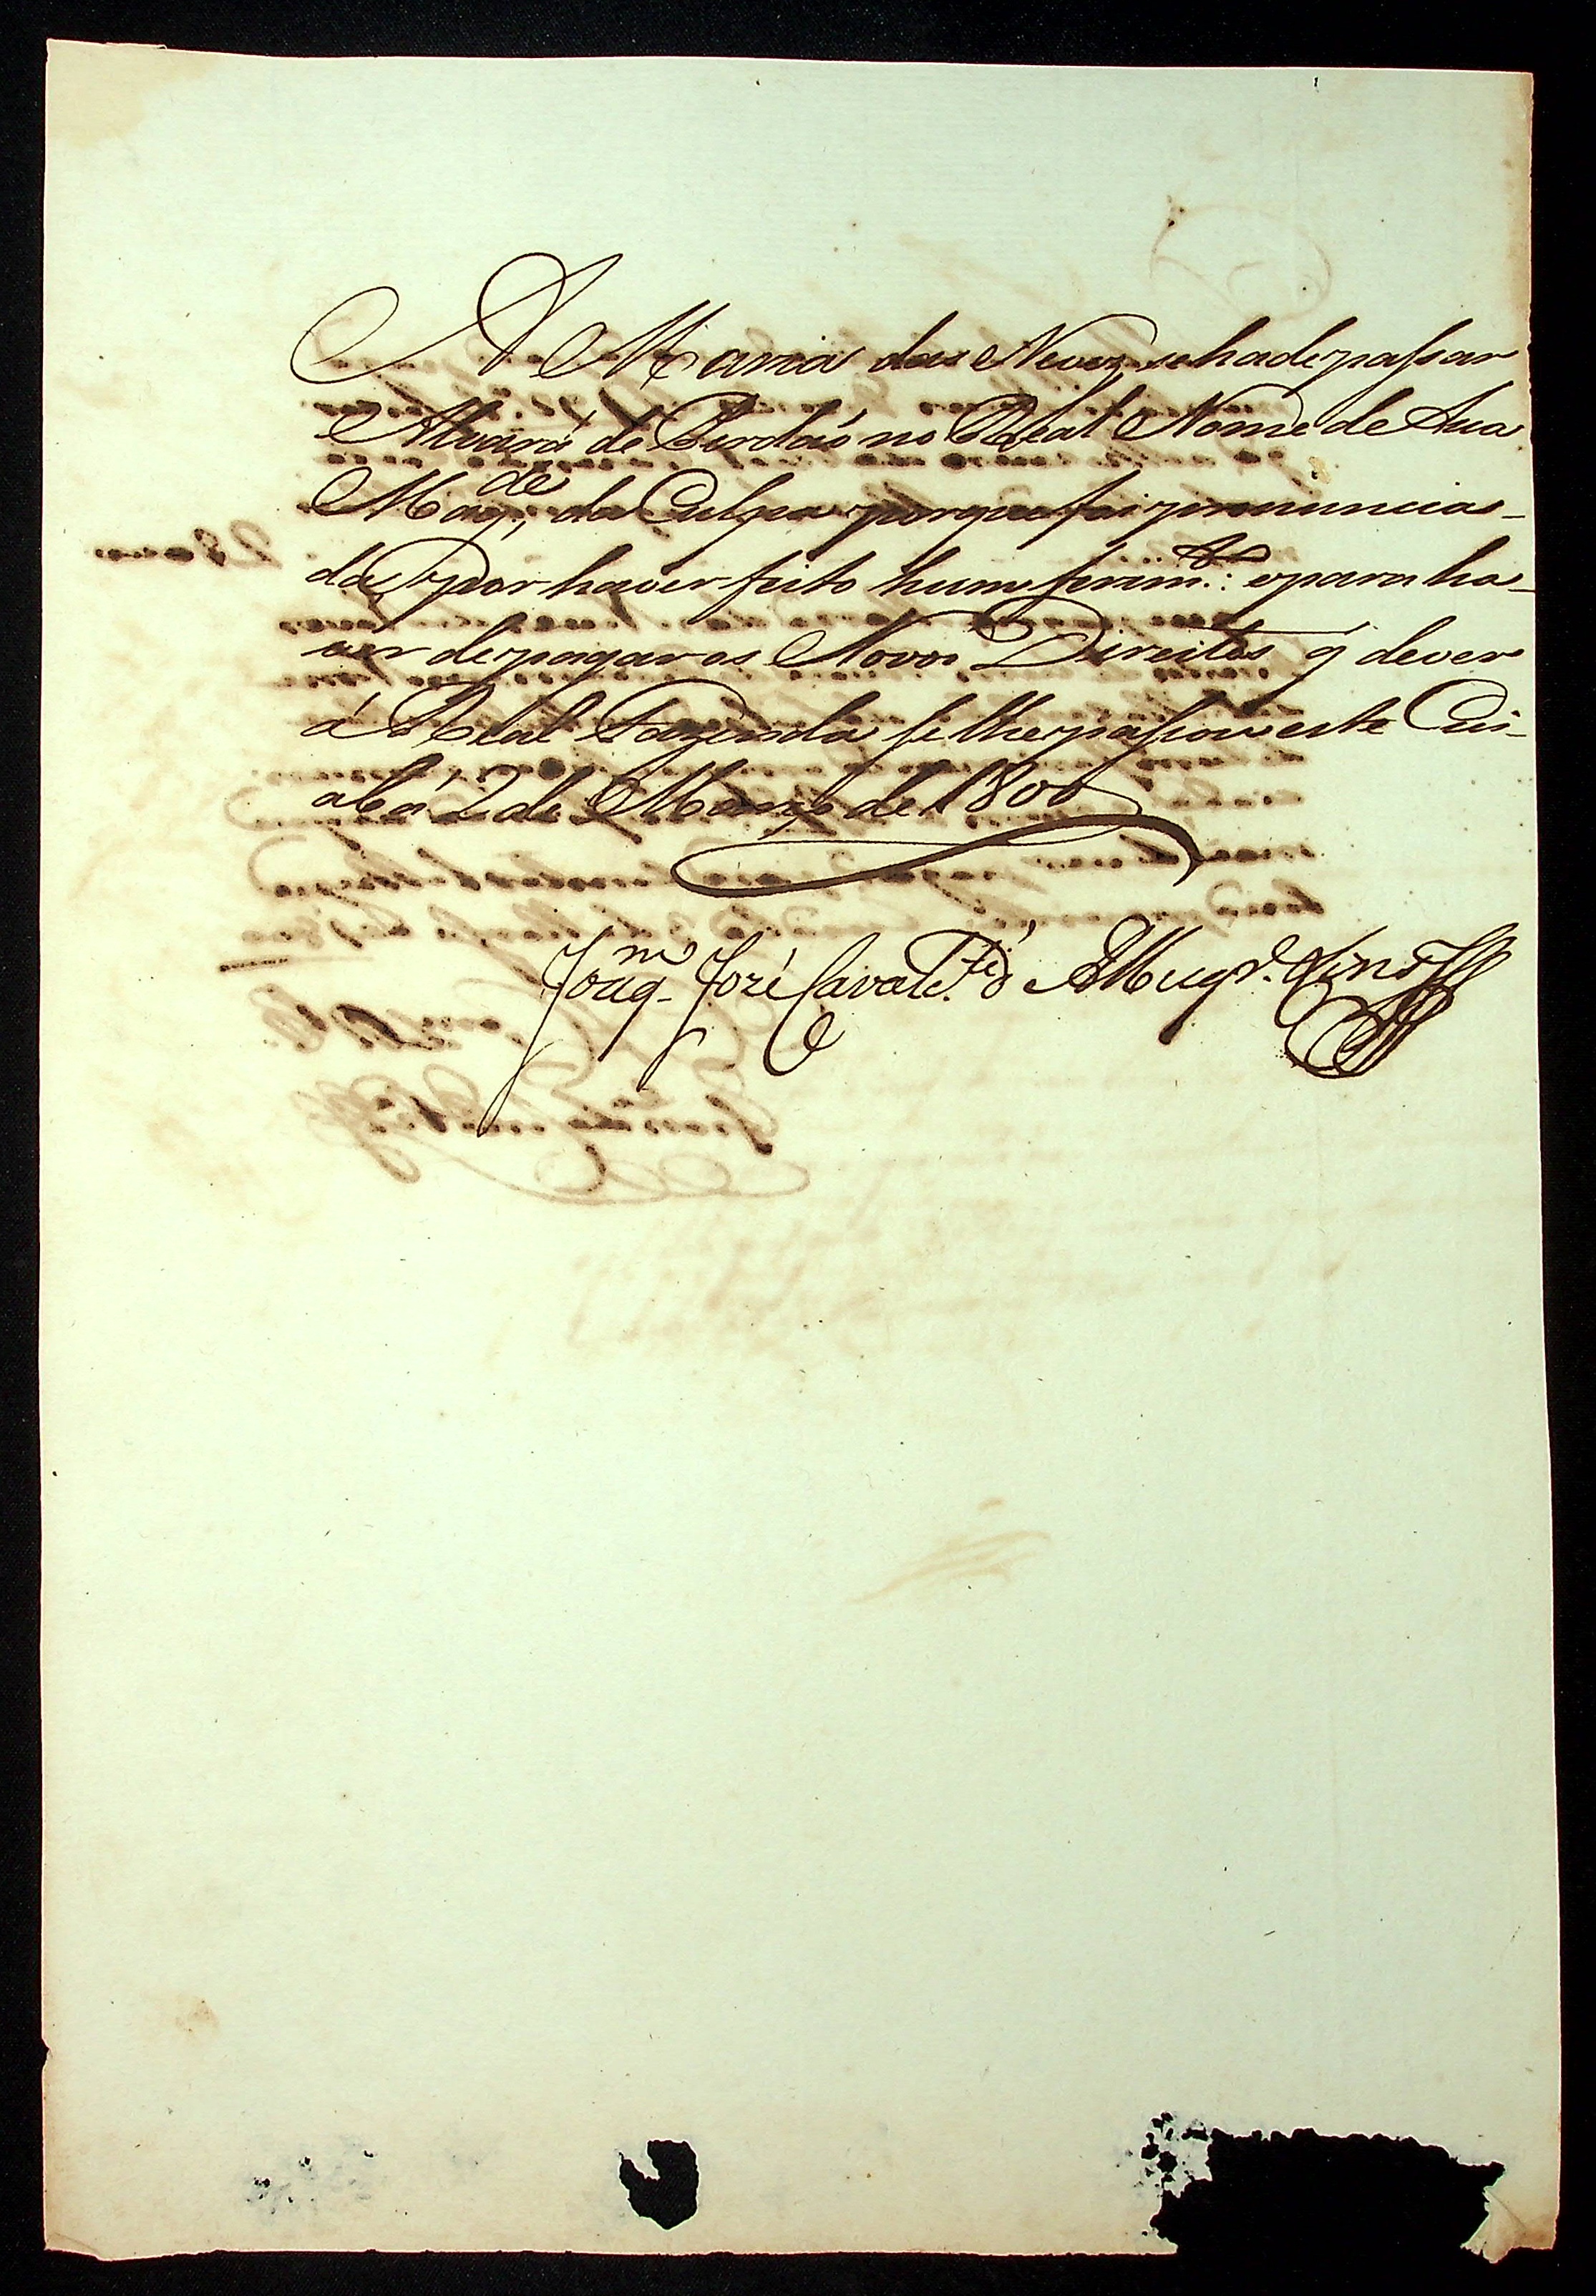 A Maria das Neves, se hade passar
Alvará de Perdaõ no Real Nome de Sua
Mag.de, da Culpa porque foi pronuncia-
da por haver feito hum ferim.to: e para ha-
ver de pagar os Novos Direitos q dever
á Real Fazenda se lhe passou este Cui-
abá 2 de Março de 1800
Joaq.m José Cavalc.te d' Albuqr.e Lins